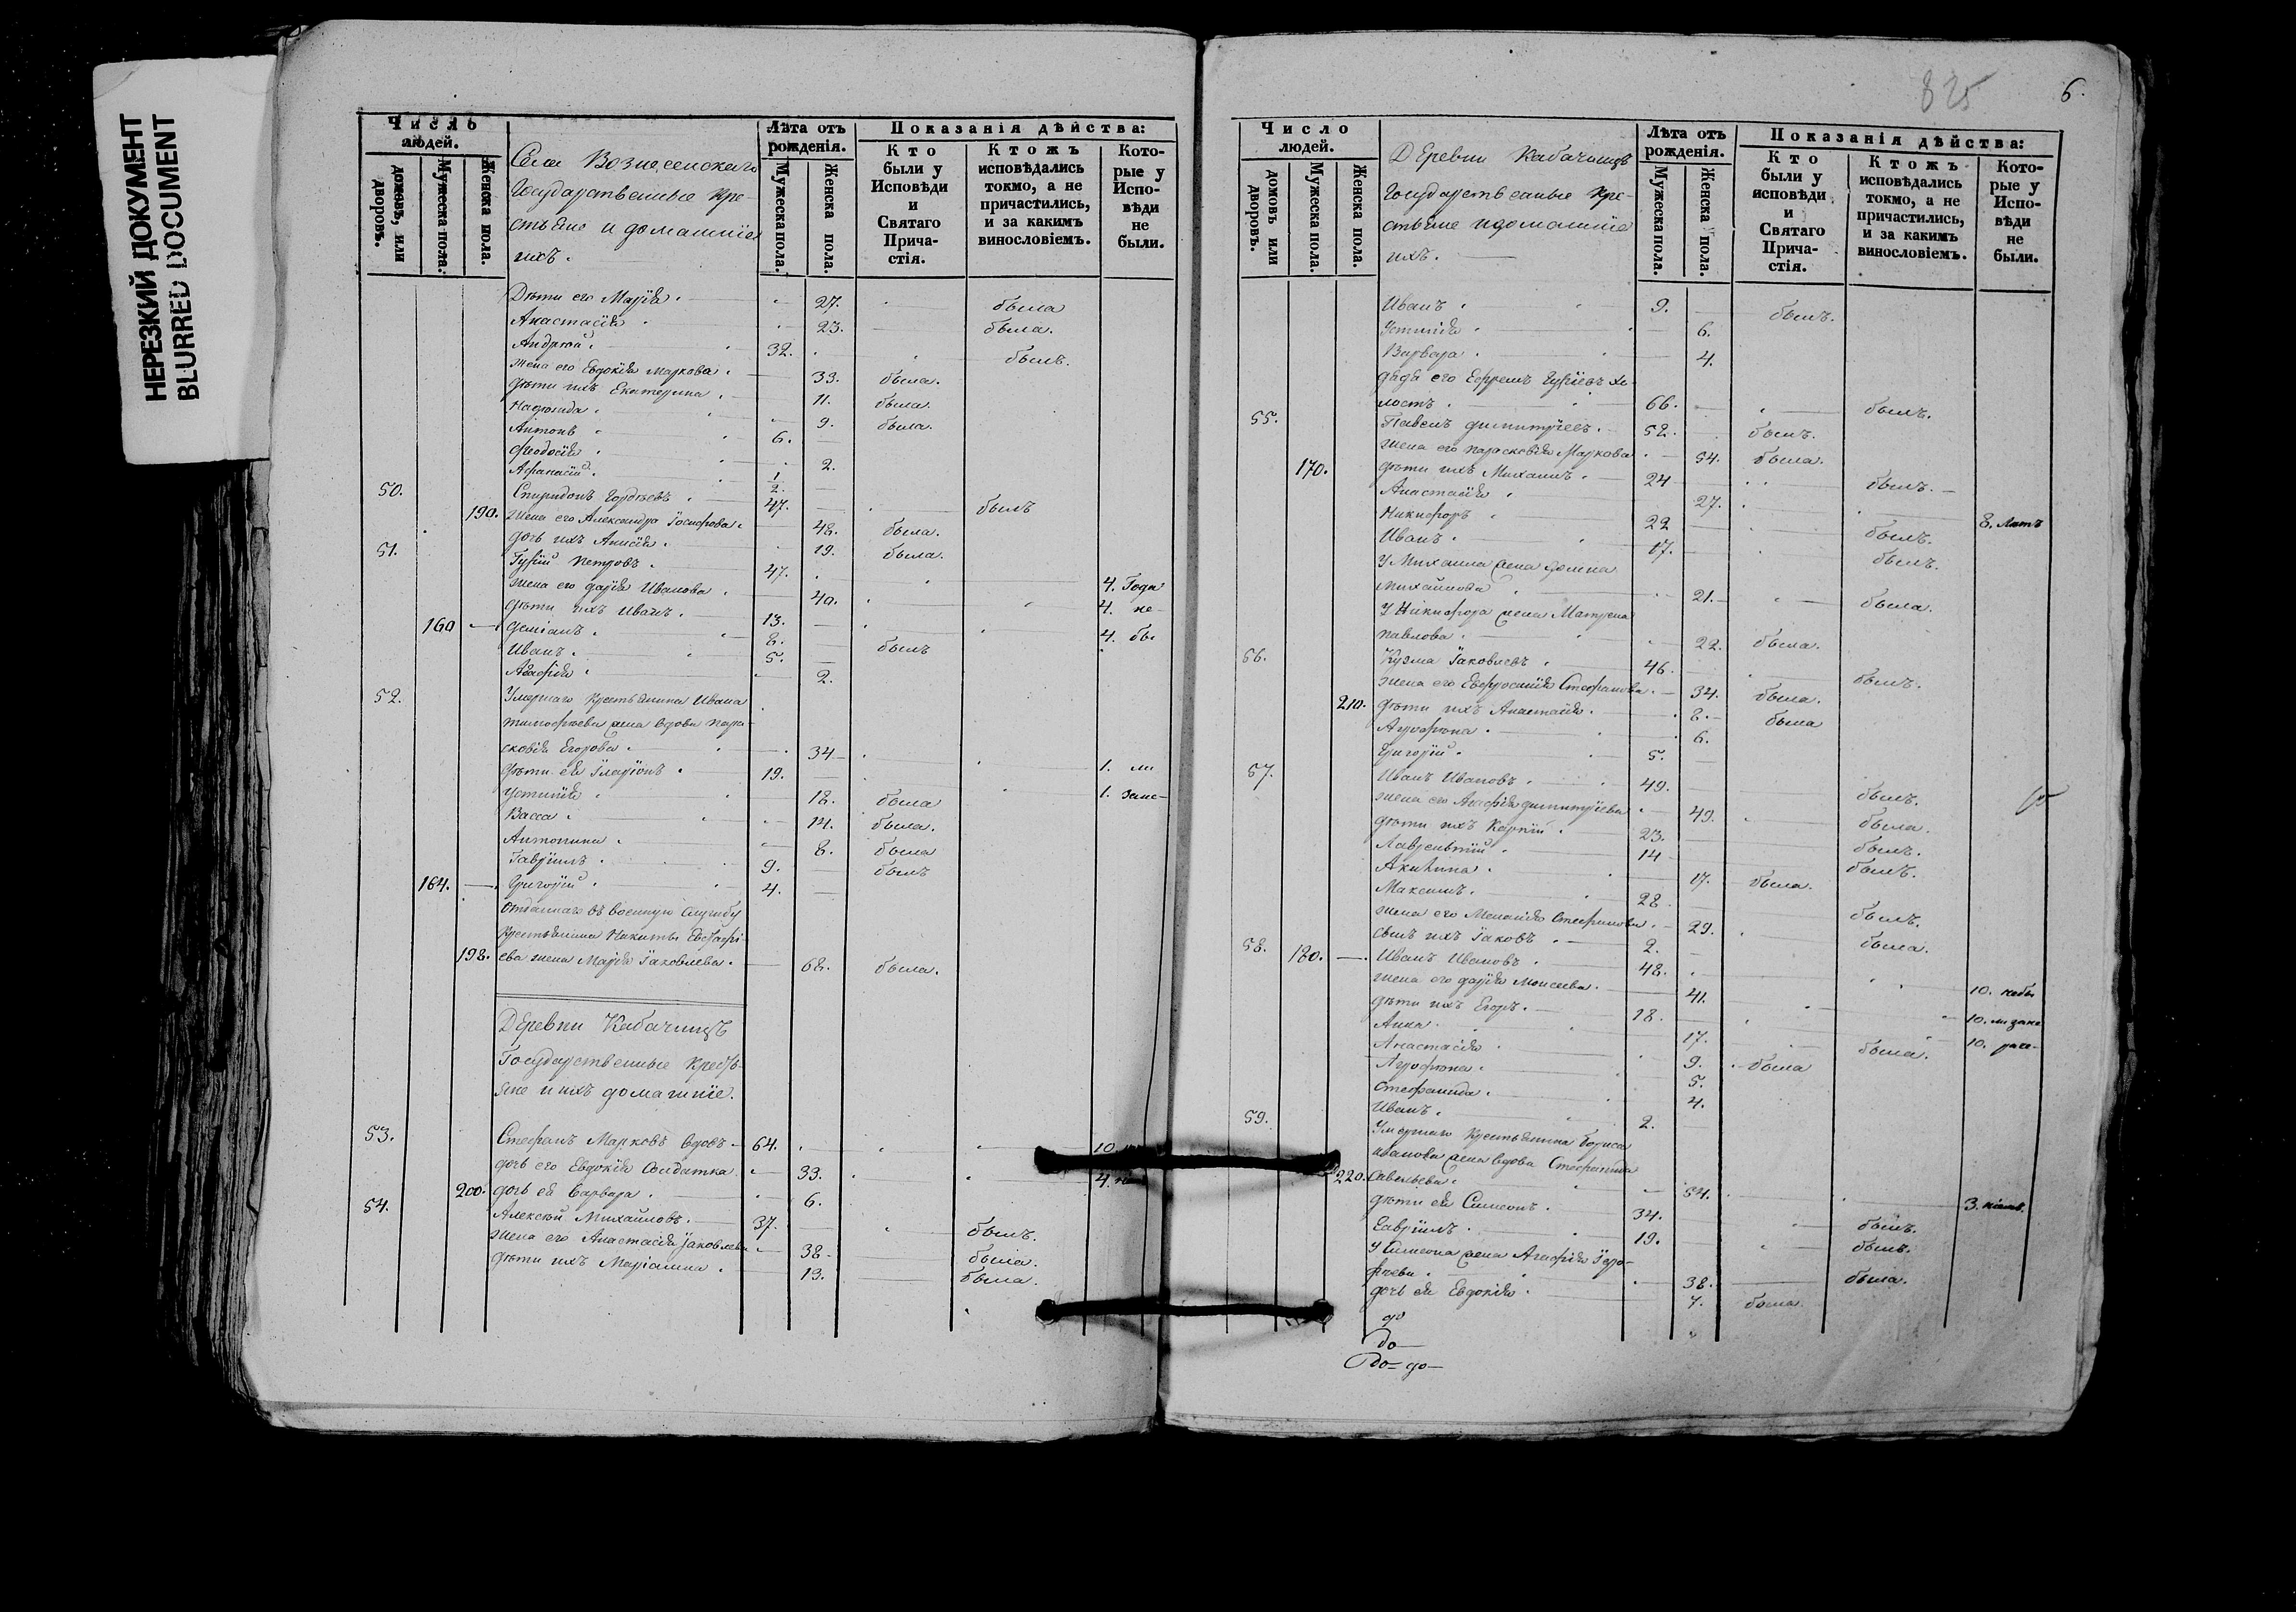 НЕРЕЗКИЙ ДОКУМЕНТ
BLURRED DOCUMENT
Число людей.
домовъ, или дворовъ.
Мужеска пола.
Женска пола.
Села Вознесенскаго
Государственные Кре-
стьяне и домашніе
ихъ.
Лѣта отъ рожденія.
Мужеска пола.
Женска пола.
Показанія дѣйства:
Кто были у Исповѣди и Святаго Прича-стія.
Ктожъ исповѣдались токмо, а не причастились, и за какимъ винословіемъ.
Кото-рые у Испо-вѣди не были.
Дѣти его Марія. 27. была
Анастасія. 23. была.
Андрей. 32. былъ.
жена его Евдокія Маркова. 33. была.
дѣти ихъ Екатерина. 11. была.
Надежда. 9. была.
Антонъ 6.
Феодосія 2.
Афанасій. 1/2.
50. Спиридонъ Гордѣевъ. 47. былъ
190. жена его Александра Іосифова. 48. была.
дочь ихъ Анисія. 19. была.
51. Гурій Петровъ. 47. 4. Года
жена его Дарія Иванова. 40. 4. не-
дѣти ихъ Иванъ. 13. 4. бы
160 Деміанъ. 8. былъ
Иванъ. 5.
Агафія. 2.
52. Умершаго крестьянина Ивана
Тимофѣева жена вдова Пара-
сковія Егорова. 34
дѣти ея Иларіонъ. 19. 1. ли
Устинія 18. была 1. зане-
Васса. 14. была.
Антонина. 8. была
Гавріилъ. 9. былъ
164. Григорій. 4.
Отданнаго въ военную службу
крестьянина Никиты Евстафі-
198. ева жена Марія Іаковлева. 68. была.
Деревни Кабачищъ
Государственные Кресть-
яне и ихъ домашніе.
53. Стефанъ Марковъ вдовъ 64. 10.
дочь его Евдокія Солдатка. 33. 4.
200. дочь ея Варвара. 6.
54. Алексѣй Михайловъ. 37. былъ.
жена его Анастасія Іаковлева 38. была.
дѣти ихъ Маріамна. 13. была.
825
6.
Число людей.
домовъ или дворовъ.
Мужеска пола.
Женска пола.
Деревни Кабачищъ
Государственные Кре-
стьяне и домашніе
ихъ.
Лѣта отъ рожденія.
Мужеска пола.
Женска пола.
Показанія дѣйства:
Кто были у исповѣди и Святаго Прича-стія.
Ктожъ исповѣдались токмо, а не причастились, и за какимъ винословіемъ.
Кото-рые у Испо-вѣди не были.
Иванъ. 9. былъ.
Устинія. 6.
Варвара. 4.
дядя его Ефремъ Гуріевъ хо-
лостъ. 66. былъ.
55. Павелъ Димитріевъ. 52. былъ.
жена его Парасковія Маркова. 54. была.
170. дѣти ихъ Михаилъ. 24 былъ.
Анастасія 27. 8. Лѣтъ
Никифоръ 22 былъ.
Иванъ. 17. былъ.
У Михаила жена
Михайлова 21. была.
У Никифора жена Матрена
Павлова. 22. была.
56. Кузма Іаковлевъ. 46. былъ.
жена его Евфросинія Стефанова. 34. была.
210. дѣти ихъ Анастасія. 8. была
Агрофена. 6.
Григорій. 5.
57. Иванъ Ивановъ. 49. былъ.
жена его Агафія Димитріева 49. была.
дѣти ихъ Карпъ. 23. былъ.
Лаврентій. 14 былъ.
Акилина. 17. была.
Максимъ. 28 былъ.
жена его Меланія Стефанова. 29. была.
сынъ ихъ Іаковъ. 2.
58. 180. Иванъ Ивановъ. 48. 10. небы
жена его Дарія Моисеева. 41. 10. ли зане
дѣти ихъ Егоръ. 18. 10.
Анна. 17. была.
Анастасія 9. была
Агрофена. 5.
Стефанида. 4.
Иванъ. 2.
59. Умершаго крестьянина Бориса
Иванова жена вдова Стефанида
220. Савельева. 54. 3.
дѣти ея Симеонъ. 34. былъ.
Гавріилъ. 19. былъ.
У Симеона жена Агафія Іеро-
фѣева. 38. была.
дочь ея Евдокія. 7. была.
до
до
До до